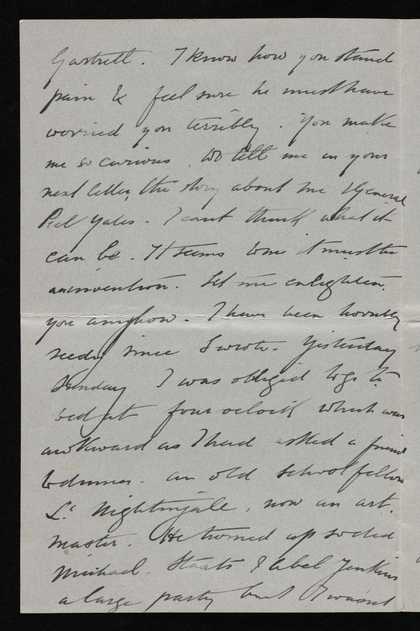 Gastrell. I know how you stand
pain & feel sure he must have
worried you terribly. You make
me so curious. Do tell me in your
next letter, the story about me & General
Peel Yates. I can't think what it
can be. It seems to me it must be
an invention. Let me enlighten
you anyhow. I have been horribly
seedy since I wrote. Yesterday
Sunday I was obliged to go to
bed at four o'clock which was
awkward as I had asked a friend
to dinner. an old school fellow
Nightingale, now an art
master. He turned up so did
Michael. Staats & Abel Jenkins
a large party but I wasn't